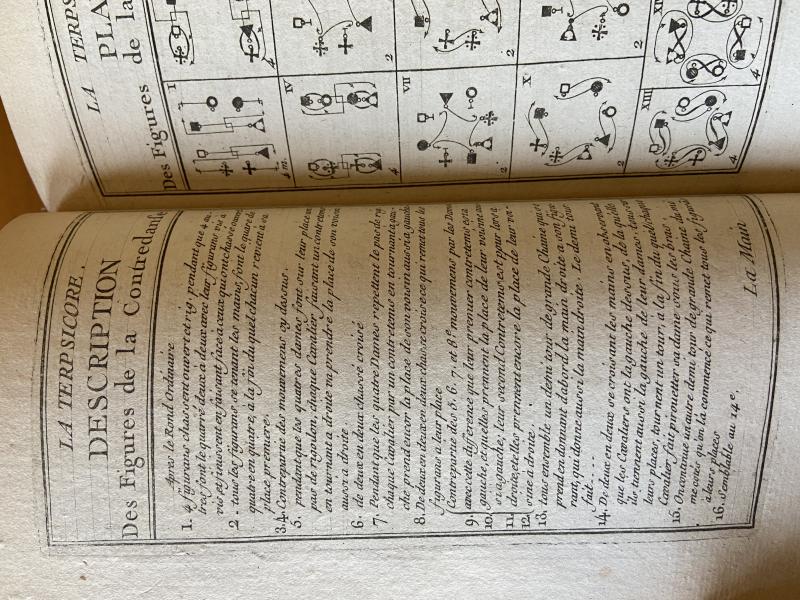 LA TERPSICORE,
DESCRIPTION
Des Figures de la Contredanse
Apres le Rond Ordinaire
1. 4 figurans chassent ouvert et rig. pendant que 4 au
tres font le quarré deux a deux avec leur figurans vis a
vis se finissent en faisant face a ceux qui ont chassé ouvert
2. tous les figurans se tenant les mains, font le quaré de
quatre en quatre, à la fin duquel chacun revient a sa
place premiere.
3.4. Contrepartie des mouvemens cy dessus.
5. pendent que les quatres dames font sur leur place un
pas de rigodon, chaque Cavalier faisant un contretems
en tournant a droite va prendre la place de son voisin
aussi a droite.
6. de deux en deux chassé croisé
7. Pendant que les quatre Dames repettent le pas de ri
chaque Cavalier par un contretems en tournant a gau
che prend encor la place de son voisin aussi a gauche
8. De deux en deux en deux chassé croisé ce qui remet tous les
figurans a leur place
Contrepartie des 5. 6. 7. et 8e mouvemens par les Dames
9. avec cette difference que leur premier contretems est a
10. gauche, et qu'elles prennent la place de leur voisine aus
si a gauche; leur second Contretems est pour lors a
11. droite, et elles prennent encore la place de leur voi-
12. sine a droite.
13. tous ensemble un demi tour de grande Chaine qui se
prend en donnant d'abord la main droite a son figu
rant, qui donne aussi la main droite. Le demi tour
fait....
14. De deux en deux se croisant les mains en observant
que les Cavaliers ont la gauche dessous, de la quelle
ils tiennent aussi la gauche de leur dames: tous
leurs places, tournent un tour, a la fin du quel chaque
Cavalier fait pirouetter sa dame sous les bras
15. On continue un autre demi tour de grande Chaine du mê
me coté qu'on la commencé ce qui remet tous les figurans
a leurs places
16. Semblable au 14e.
La Main
LA TERPS
PLA
de la
Des Figures
I
4 m.
4
IV
2
VII
2
2
X
2
2
XIII
4
XIV
4